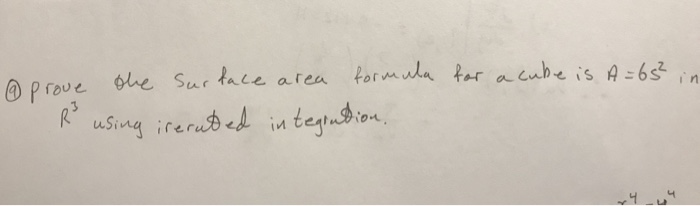 ⓐ prove the surface area formula for a cube is A = 6s² in
R³ using irerated integration.
x⁴ - y⁴